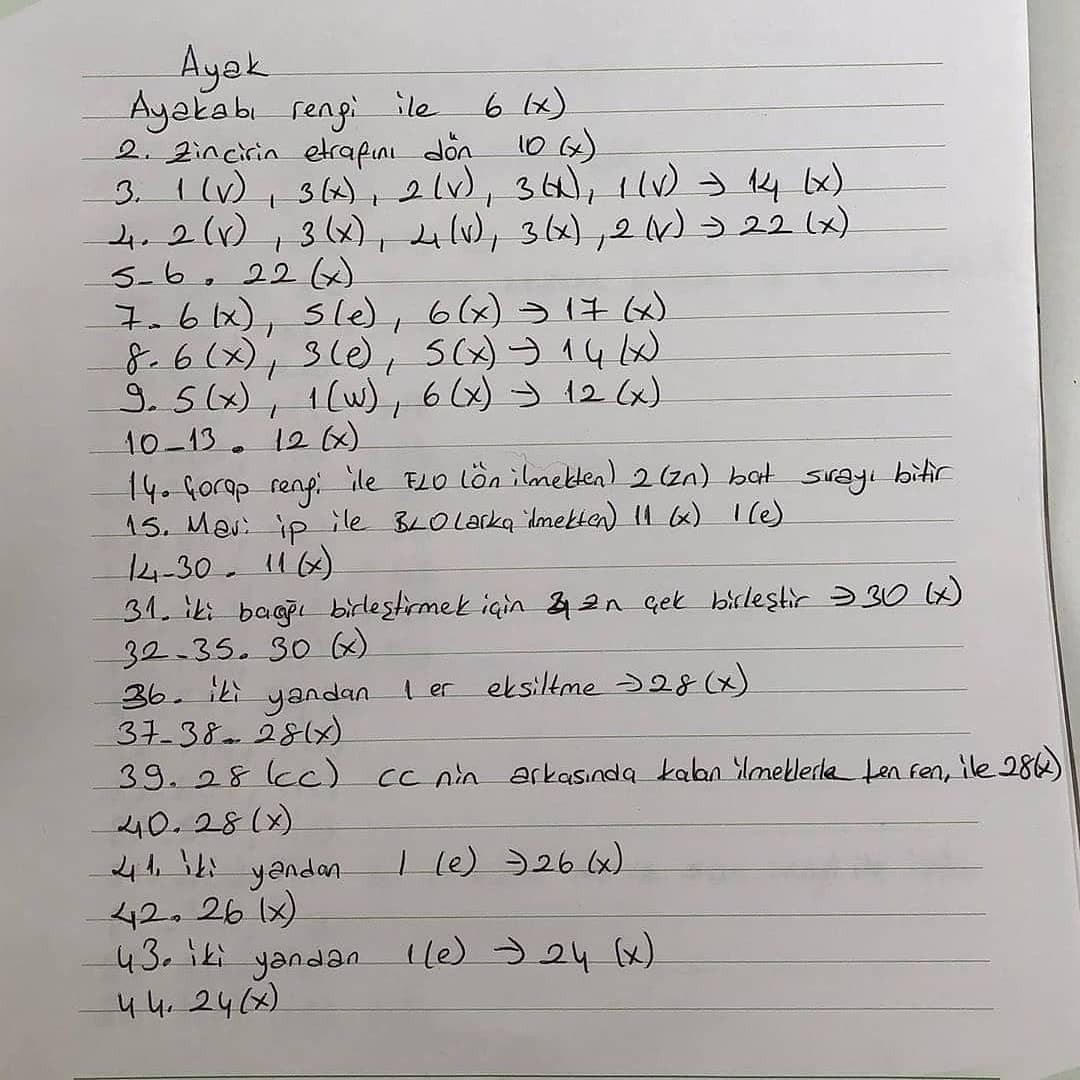 Ayak
Ayakabı rengi ile 6 (x)
2. Zincirin etrafını dön 10 (x)
3. 1 (v), 3 (x), 2 (v), 3 (x), 1 (v) → 14 (x)
4. 2 (v), 3 (x), 4 (v), 3 (x), 2 (v) → 22 (x)
5-6. 22 (x)
7. 6 (x), 5 (e), 6 (x) → 17 (x)
8. 6 (x), 3 (e), 5 (x) → 14 (x)
9. 5 (x), 1 (w), 6 (x) → 12 (x)
10-13. 12 (x)
14. Çorap rengi ile FLO (ön ilmekten) 2 (zn) bat sırayı bitir
15. Mavi ip ile BLO (arka ilmekten) 11 (x) 1 (e)
14-30. 11 (x)
31. iki bacağı birleştirmek için zn çek birleştir → 30 (x)
32-35. 30 (x)
36. iki yandan 1 er eksiltme → 28 (x)
37-38- 28 (x)
39. 28 (cc) cc nin arkasında kalan ilmeklerle ten ren, ile 28 (x)
40. 28 (x)
41. İki yandan 1 (e) → 26 (x)
42. 26 (x)
43. iki yandan 1 (e) → 24 (x)
44. 24 (x)